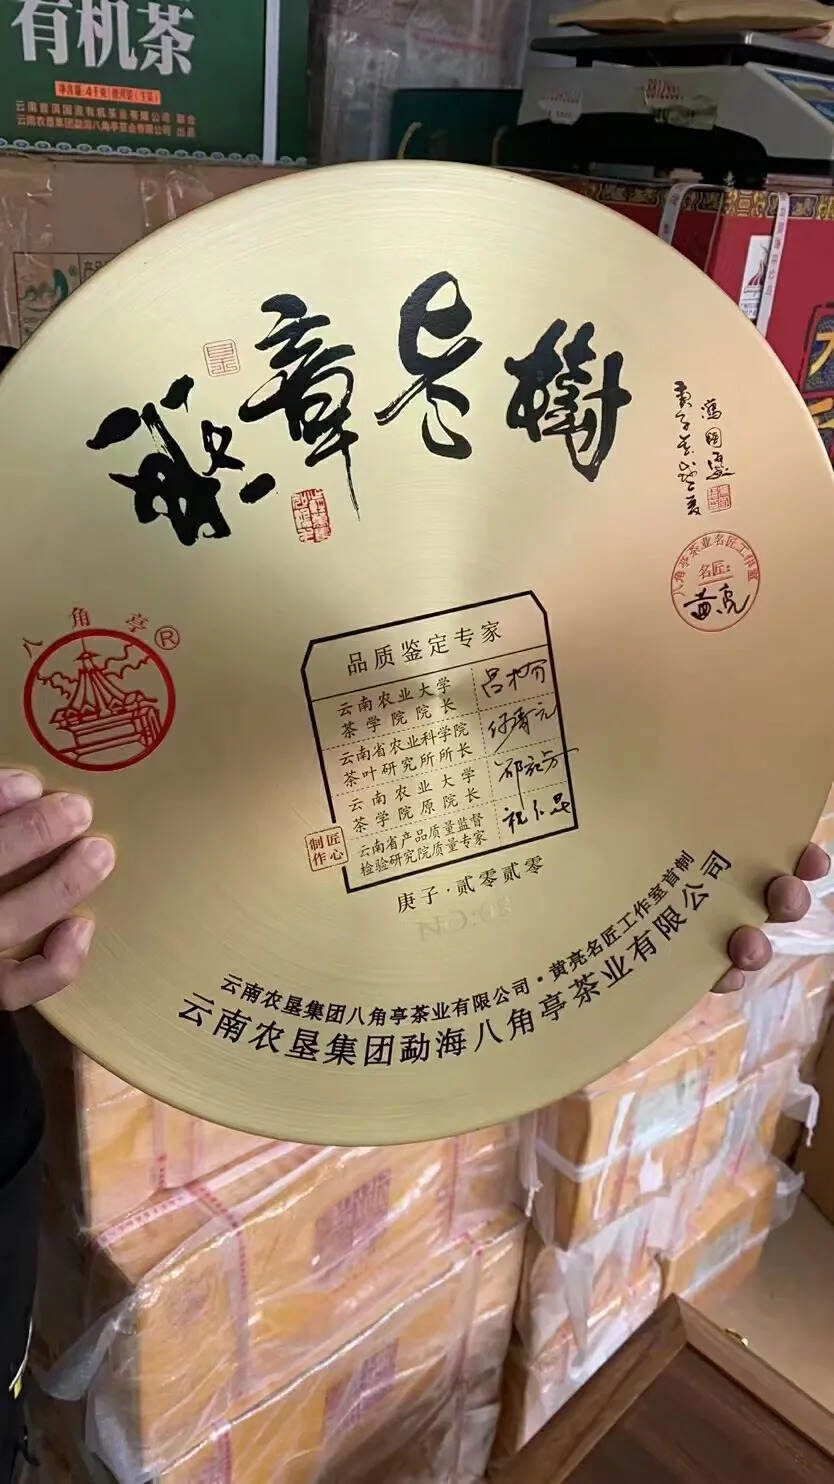 有机茶
净含量:4千克(普洱茶(生茶)
云南农垦集团勐海八角亭茶业有限公司 出品
班章老树
八角亭®
八角亭茶业名匠工作室
名匠:
黄亮
品质鉴定专家
云南农业大学
茶学院院长
云南省农业科学院
茶叶研究所所长
云南农业大学
茶学院原院长
云南省产品质量监督
检验研究院质量专家
匠心
制作
庚子·贰零贰零
云南农垦集团八角亭茶业有限公司·黄亮名匠工作室首制
云南农垦集团勐海八角亭茶业有限公司